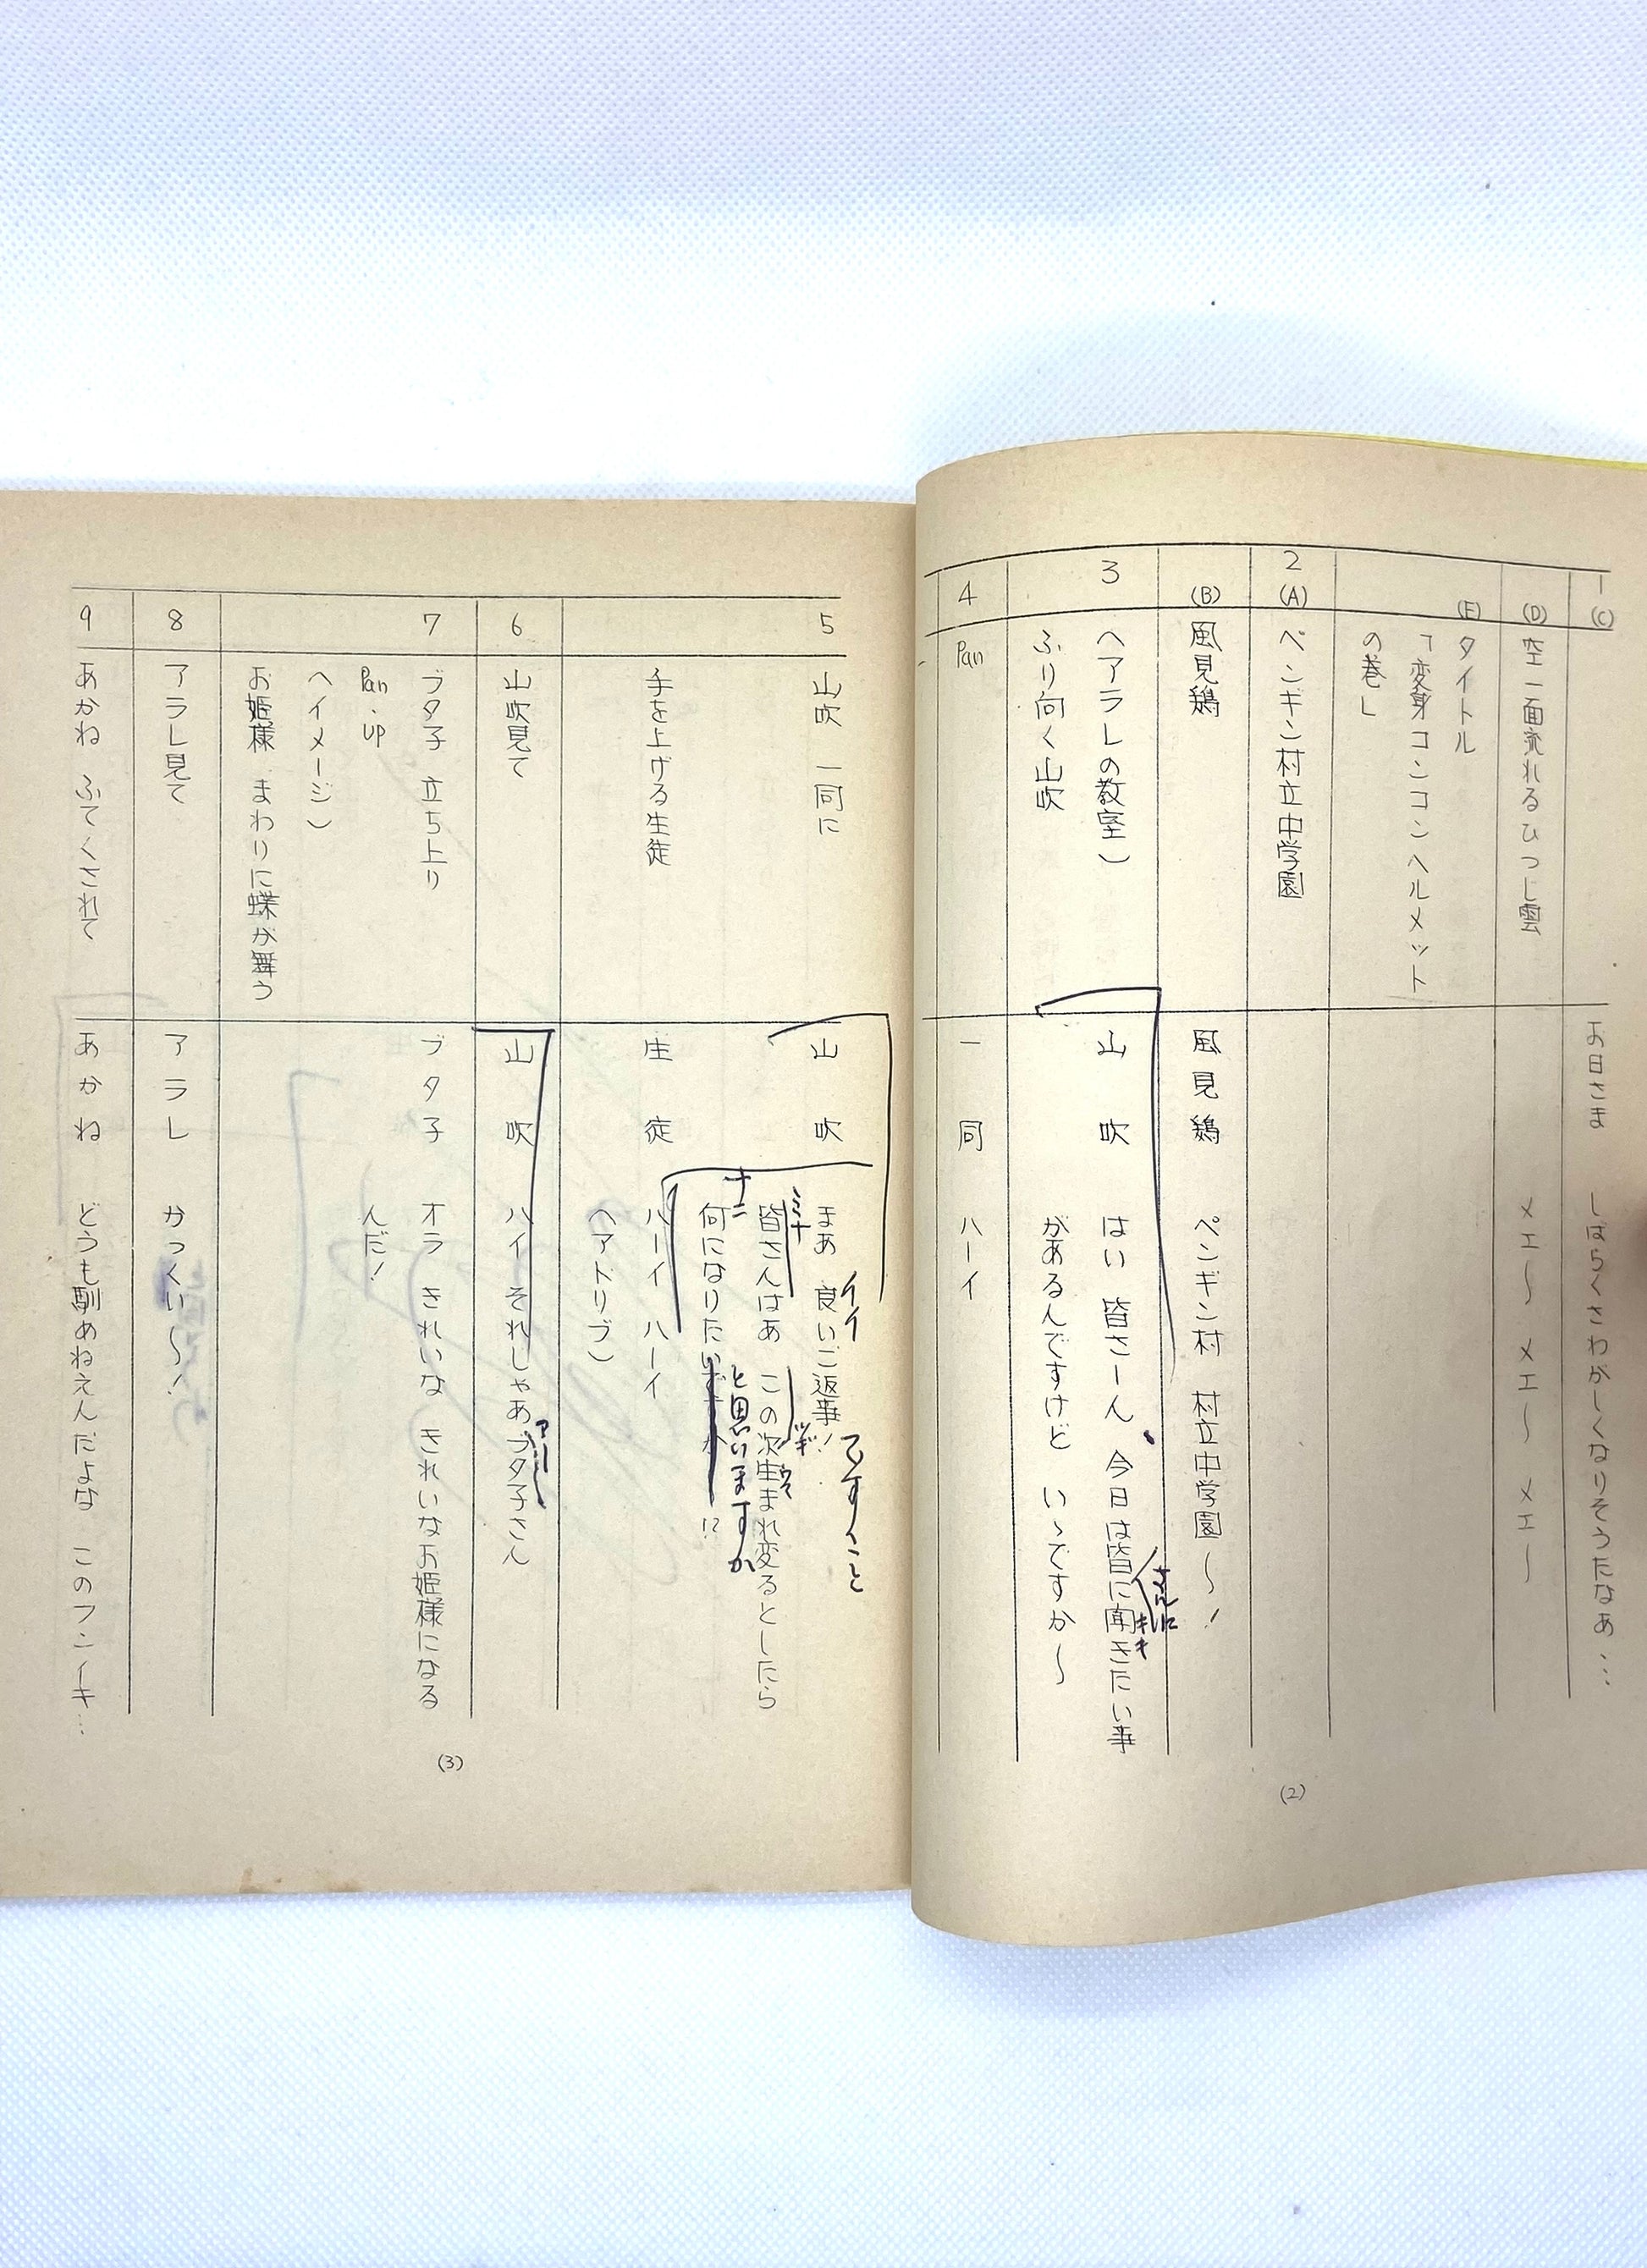 1
(C)
お日さま　しばらくさわがしくなりそうだなあ…
(D)
空一面流れるひつじ雲
メエ〜　メエ〜　メエ〜
(E)
タイトル
「変身コンコンヘルメット
の巻」
2
(A)
ペンギン村立中学園
(B)
風見鶏
風見鶏　ペンギン村　村立中学園〜！
3
〈アラレの教室〉
ふり向く山吹
山吹　はい　皆さーん　今日は皆に聞きたい事
さんに
キキ
があるんですけど　いゝですか〜
4
Pan
一同　ハーイ
(2)
5
山吹　一同に
山吹　まあ　良いご返事！
イイ
ですこと
皆さんはあ　この次生まれ変るとしたら
ミナ
ツギ
ウ
何になりたいですか!?
ナニ
と思いますか
手を上げる生徒
生徒　ハーイ　ハーイ
〈アドリブ〉
6
山吹見て
山吹　ハイ　それじゃあブタ子さん
アー
7
ブタ子　立ち上り
Pan・UP
〈イメージ〉
お姫様　まわりに蝶が舞う
ブタ子　オラ　きれいな　きれいなお姫様になる
んだ！
8
アラレ見て
アラレ　かっくい〜！
9
あかね　ふてくされて
あかね　どうも馴めねえんだよな　このフンイキ…
(3)